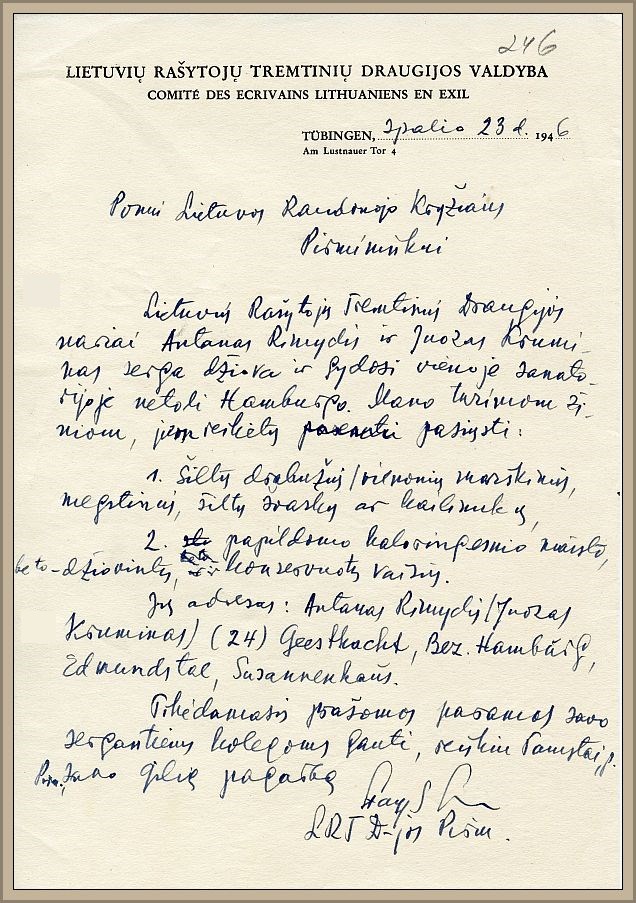 246
LIETUVIŲ RAŠYTOJŲ TREMTINIŲ DRAUGIJOS VALDYBA
COMITÉ DES ECRIVAINS LITHUANIENS EN EXIL
TÜBINGEN, spalio 23 d. 1946
Am Lustnauer Tor 4
Ponui Lietuvos Raudonojo Kryžiaus
Pirmininkui
Lietuvių Rašytojų Tremtinių Draugijos
nariai Antanas Rimydis ir Juozas Krumi-
nas serga džiova ir gydosi vienoje sanato-
rijoje netoli Hamburgo. Mano turimom ži-
niom, jiem reikėtų pasiųsti:
1. Šiltų drabužių/vilnonių marškinių,
megstinių, šiltų švarkų ar kailinukų,
2. papildomo kaloringesnio maisto,
be to - džiovintų, konservuotų vaisių.
Jų adresas: Antanas Rimydis/Juozas
Kruminas) (24) Geesthacht, Bez. Hambürg,
Edmundstal, Suzannenhaus.
Tikėdamasis prašomos paramos savo
sergantiems kolegoms gauti, reiškiu Tamstai, p.
Pirm., savo gilią pagarbą
LRT D-jos Pirm.